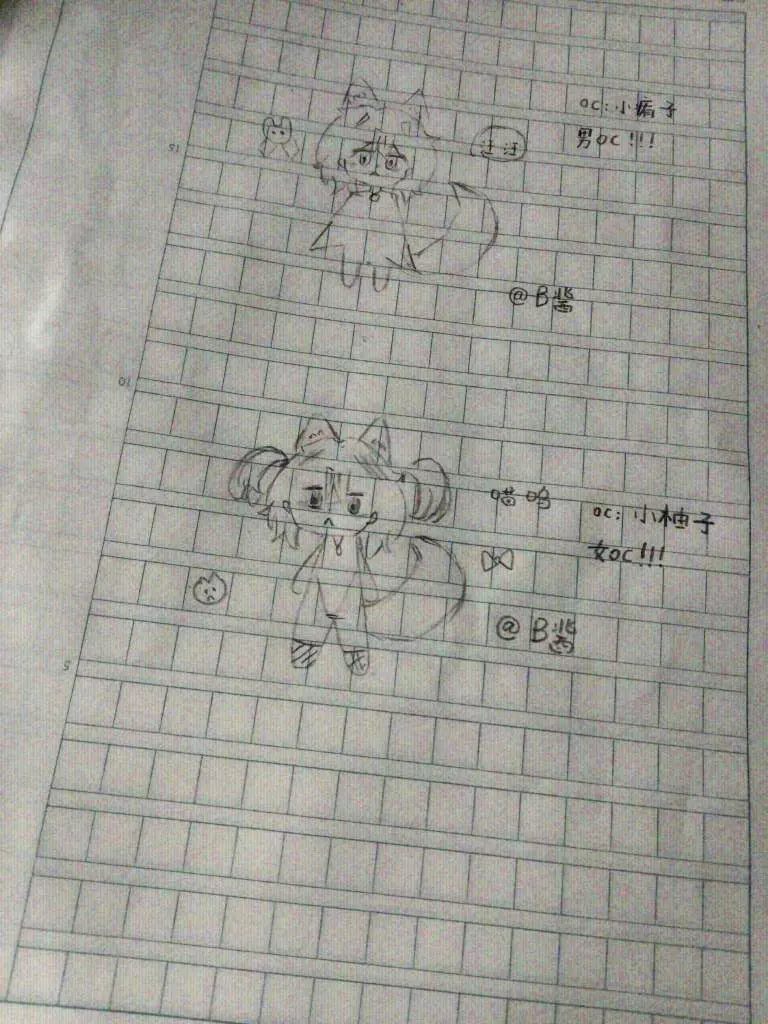 oc:小盾子
男oc!!!
汪汪
@B酱
喵呜
oc:小柚子
女oc!!!
@B酱
15
10
5